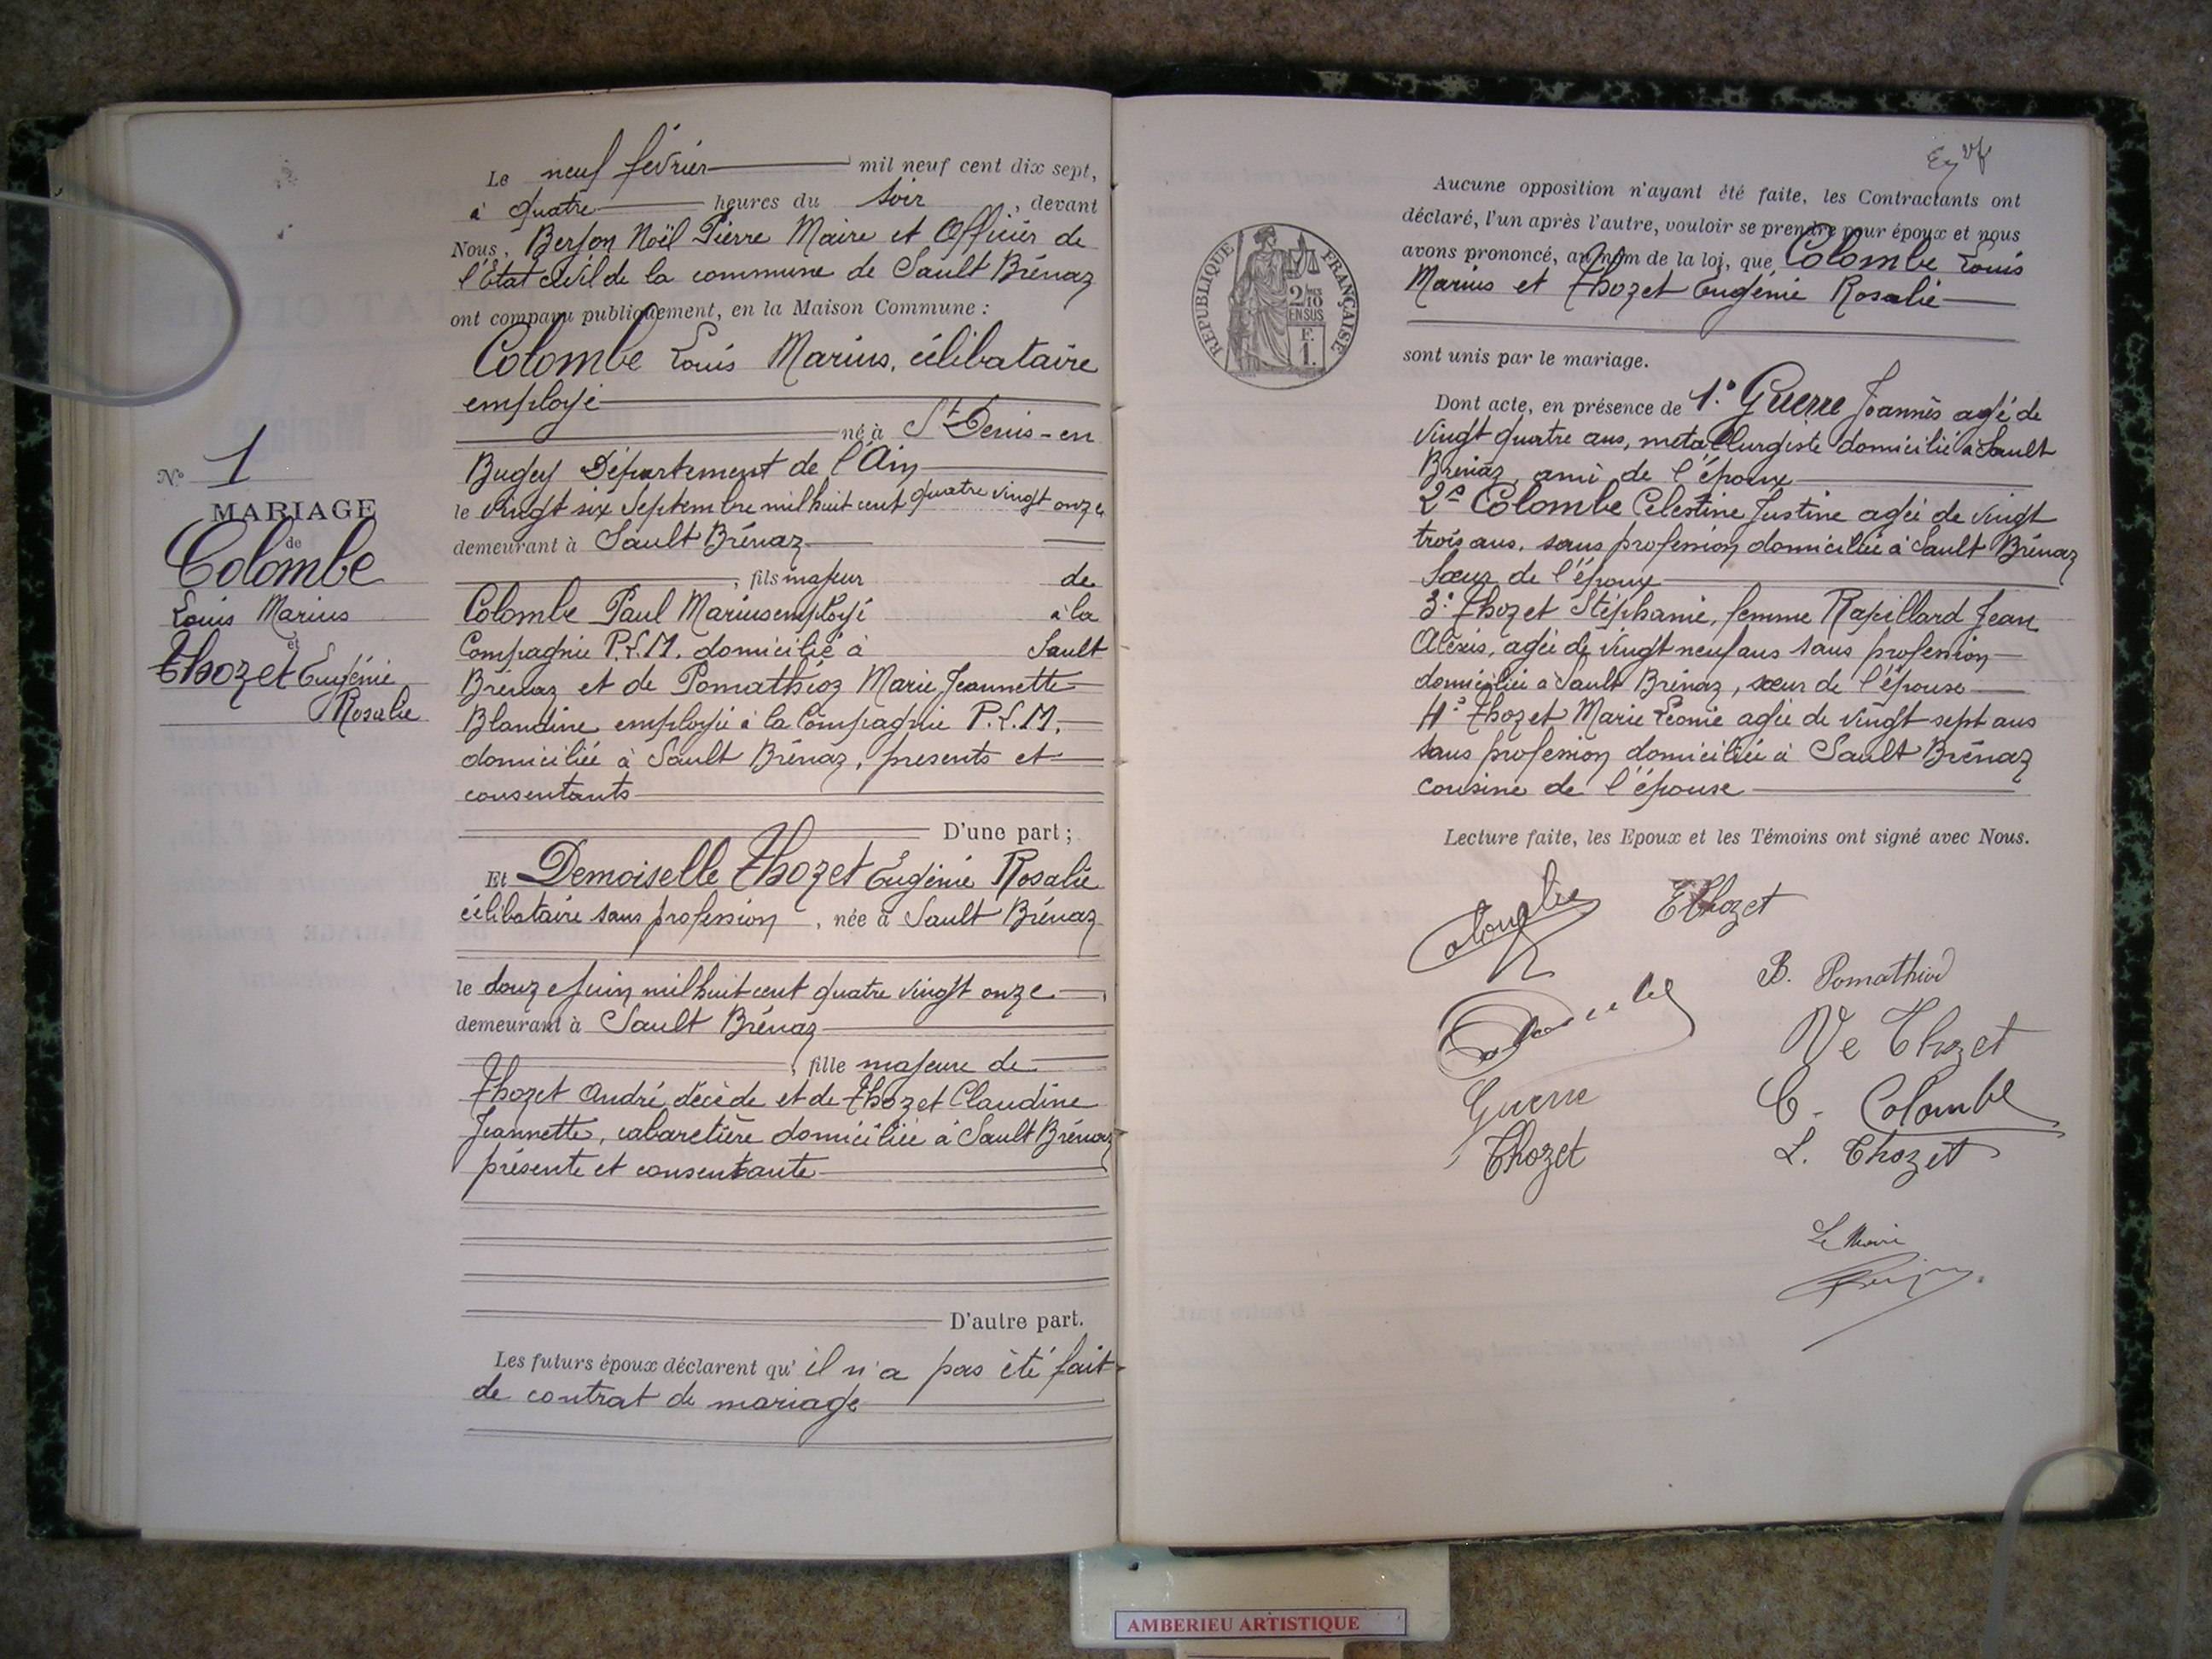 N° 1
MARIAGE
de
Colombe
Louis Marius
et
Thozet Eugénie
Rosalie
Le neuf février mil neuf cent dix sept,
à quatre heures du soir, devant
Nous, Berjon Noël Pierre Maire et Officier de
l'État civil de la commune de Sault Brénaz
ont comparu publiquement, en la Maison Commune :
Colombe Louis Marius, célibataire
employé
né à St Denis-en
Bugey Département de l'Ain
le vingt six Septembre mil huit cent quatre vingt onze
demeurant à Sault Brénaz
, fils majeur de
Colombe Paul Marius employé à la
Compagnie P.L.M. domicilié à Sault
Brénaz et de Pomathioz Marie Jeannette
Blandine employée à la Compagnie P.L.M.
domiciliée à Sault Brénaz, presents et
consentants
D'une part ;
Et Demoiselle Thozet Eugénie Rosalie
célibataire sans profession, née à Sault Brénaz
le douze juin mil huit cent quatre vingt onze
demeurant à Sault Brénaz
, fille majeure de
Thozet André, décédé et de Thozet Claudine
Jeannette, cabaretière domiciliée à Sault Brénaz
présente et consentante
D'autre part.
Les futurs époux déclarent qu'il n'a pas été fait
de contrat de mariage
Aucune opposition n'ayant été faite, les Contractants ont
déclaré, l'un après l'autre, vouloir se prendre pour époux et nous
avons prononcé, au nom de la loi, que Colombe Louis
Marius et Thozet Eugénie Rosalie
sont unis par le mariage.
RÉPUBLIQUE FRANÇAISE
2/10
EN SUS
F.
1.
Dont acte, en présence de 1° Guerre Joannès agé de
vingt quatre ans, metallurgiste domicilié à Sault
Brénaz, ami de l'époux
2° Colombe Celestine Justine agée de vingt
trois ans, sans profession domiciliée à Sault Brénaz
sœur de l'époux
3° Thozet Stéphanie, femme Rapillard Jean
Alexis, agée de vingt neuf ans sans profession
domiciliée à Sault Brénaz, sœur de l'épouse
4° Thozet Marie Léonie agée de vingt sept ans
sans profession domiciliée à Sault Brénaz
cousine de l'épouse
Lecture faite, les Epoux et les Témoins ont signé avec Nous.
Colombe E Thozet
B. Pomathiod
Ve Thozet
Guerre C. Colombe
Thozet L. Thozet
Le Maire
Berjon
AMBERIEU ARTISTIQUE